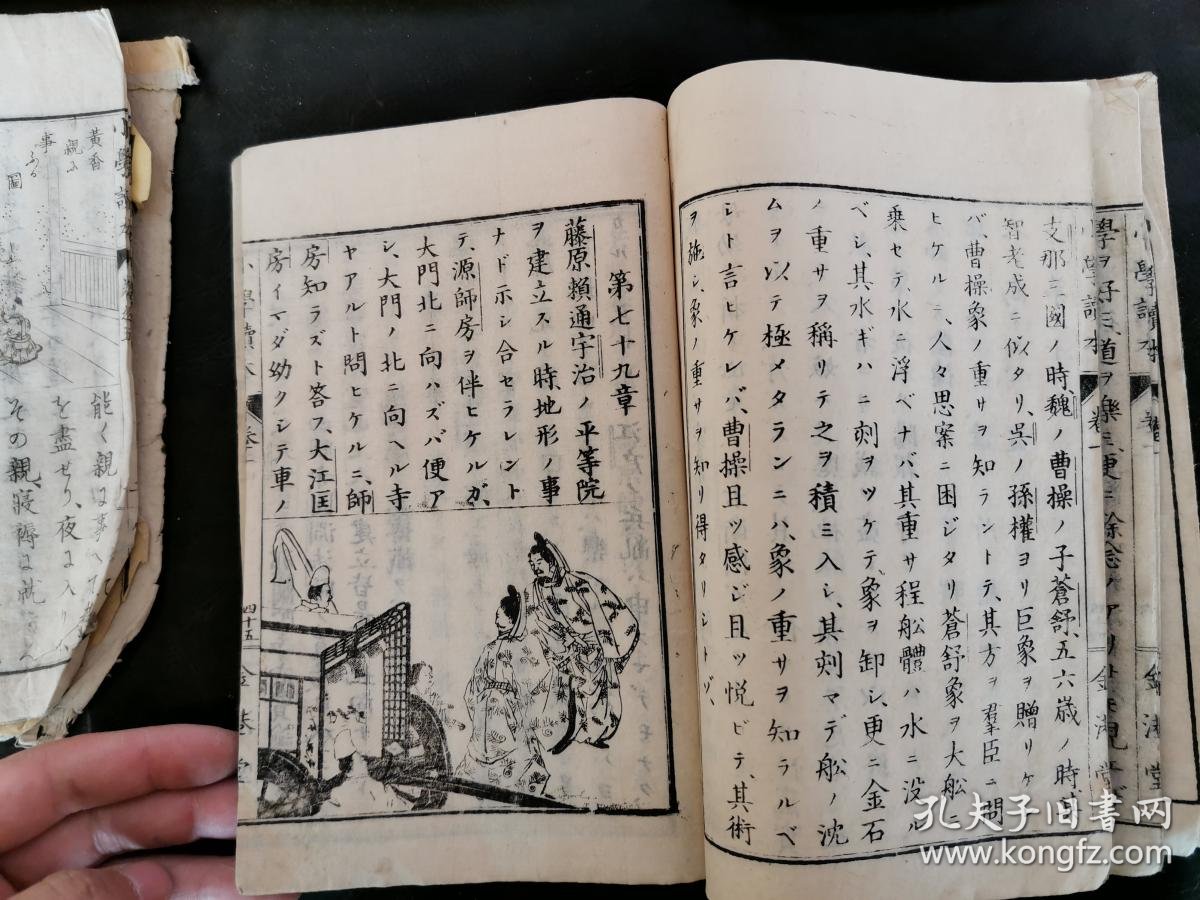 支那三國ノ時、魏ノ曹操ノ子蒼舒、五六歳ノ時
智老成ニ似タリ、呉ノ孫權ヨリ巨象ヲ贈リケ
バ、曹操象ノ重サヲ知ラントテ、其方ヲ羣臣ニ問
ヒケルニ、人々思案ニ困ジタリ蒼舒象ヲ大船ニ
乗セテ、水ニ浮ベナバ、其重サ程船體ハ水ニ没ル
ベシ、其水ギハニ刻ヲツケテ象ヲ卸シ、更ニ金石
ノ重サヲ稱リテ之ヲ積ミ入レ、其刻マデ船ノ沈
ムヲ以テ極メタランニハ、象ノ重サヲ知ラルベ
シト言ヒケレバ、曹操且ツ感ジ且ツ悦ビテ、其術
ヲ施シ、象ノ重サヲ知リ得タリシトゾ、
第七十九章
藤原頼通宇治ノ平等院
ヲ建立スル時地形ノ事
ナド示シ合セラレント
テ、源師房ヲ伴ヒケルガ、
大門北ニ向ハズバ便ア
シ、大門ノ北ニ向ヘル寺
ヤアルト問ヒケルニ、師
房知ラズト答フ、大江匡
房イマダ幼クシテ車ノ
四十五
黄香
親に
事ふる
圖
能く親に事へて
を盡せり、夜に入り
その親、寝褥に就
學ヲ好ミ、道ヲ樂ミ、更ニ餘念
小學讀本
孔夫子旧书网
www.kongfz.com